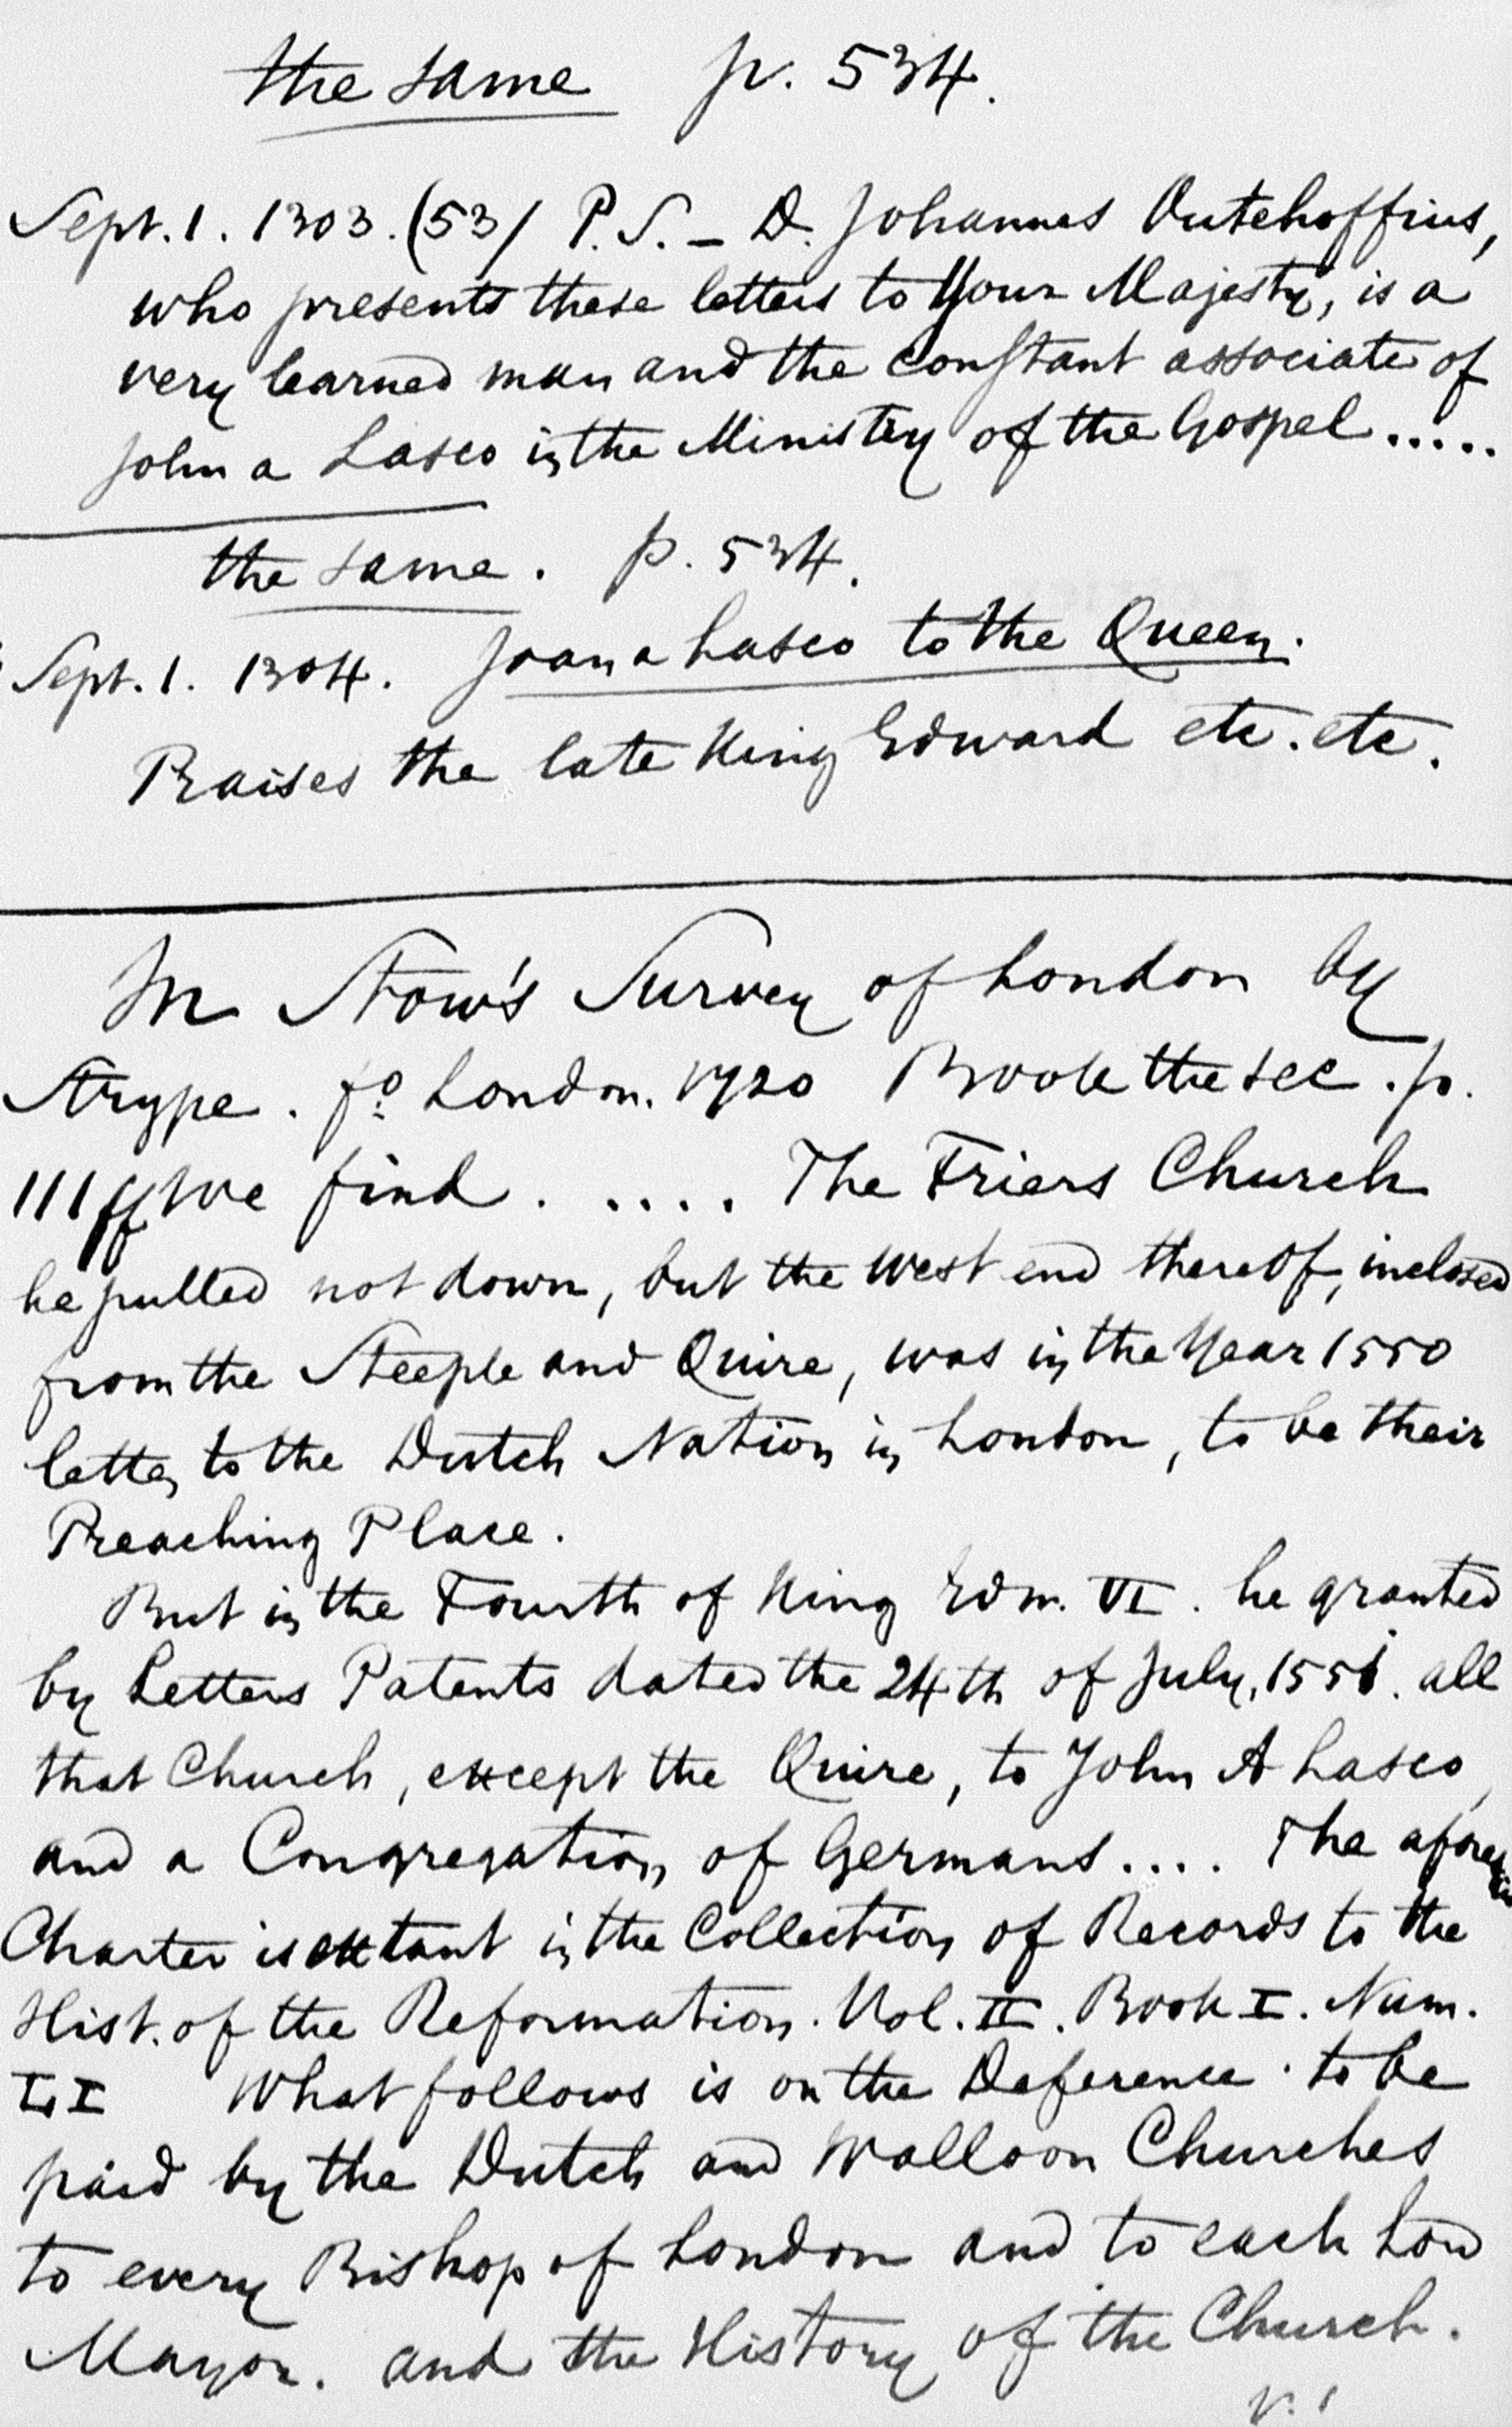 the same p. 534.
Sept. 1. 1303. (53/ P.S. – D. Johannes Outehoffius,
who presents these letters to Your Majesty, is a
very learned man and the constant associate of
John a Lasco in the Ministry of the Gospel .....
the same. p. 534.
Sept. 1. 1304. Joan a Lasco to the Queen.
Praises the late King Edward etc. etc.
In Stow's Survey of London by
Strype. fo. London. 1720 Book the sec. p.
111 ff we find . .... The Friers Church
he pulled not down, but the West end thereof, inclosed
from the Steeple and Quire, was in the Year 1550
letten to the Dutch Nation in London, to be their
Preaching Place.
But in the Fourth of King Edw. VI. he granted
by Letters Patents dated the 24th of July, 1551. all
that Church, except the Quire, to John A Lasco,
and a Congregation of Germans .... The
Charter is extant in the Collection of Records to the
Hist. of the Reformation. Vol. II. Book I. Num.
LI What follows is on the Deference to be
paid by the Dutch and Walloon Churches
to every Bishop of London and to each Lord
Mayor. and the History of the Church.